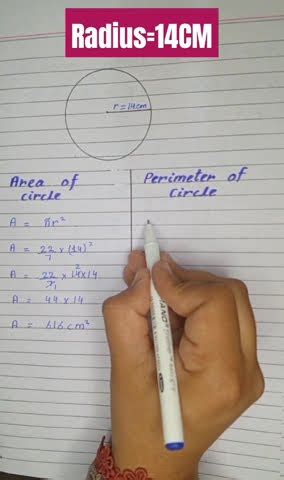 Radius=14CM
r=14cm
Area of
circle
A = πr²
A = 22/7 × (14)²
A = 22/7₁ × 1̶4̶² × 14
A = 44 × 14
A = 616 cm²
Perimeter of
Circle